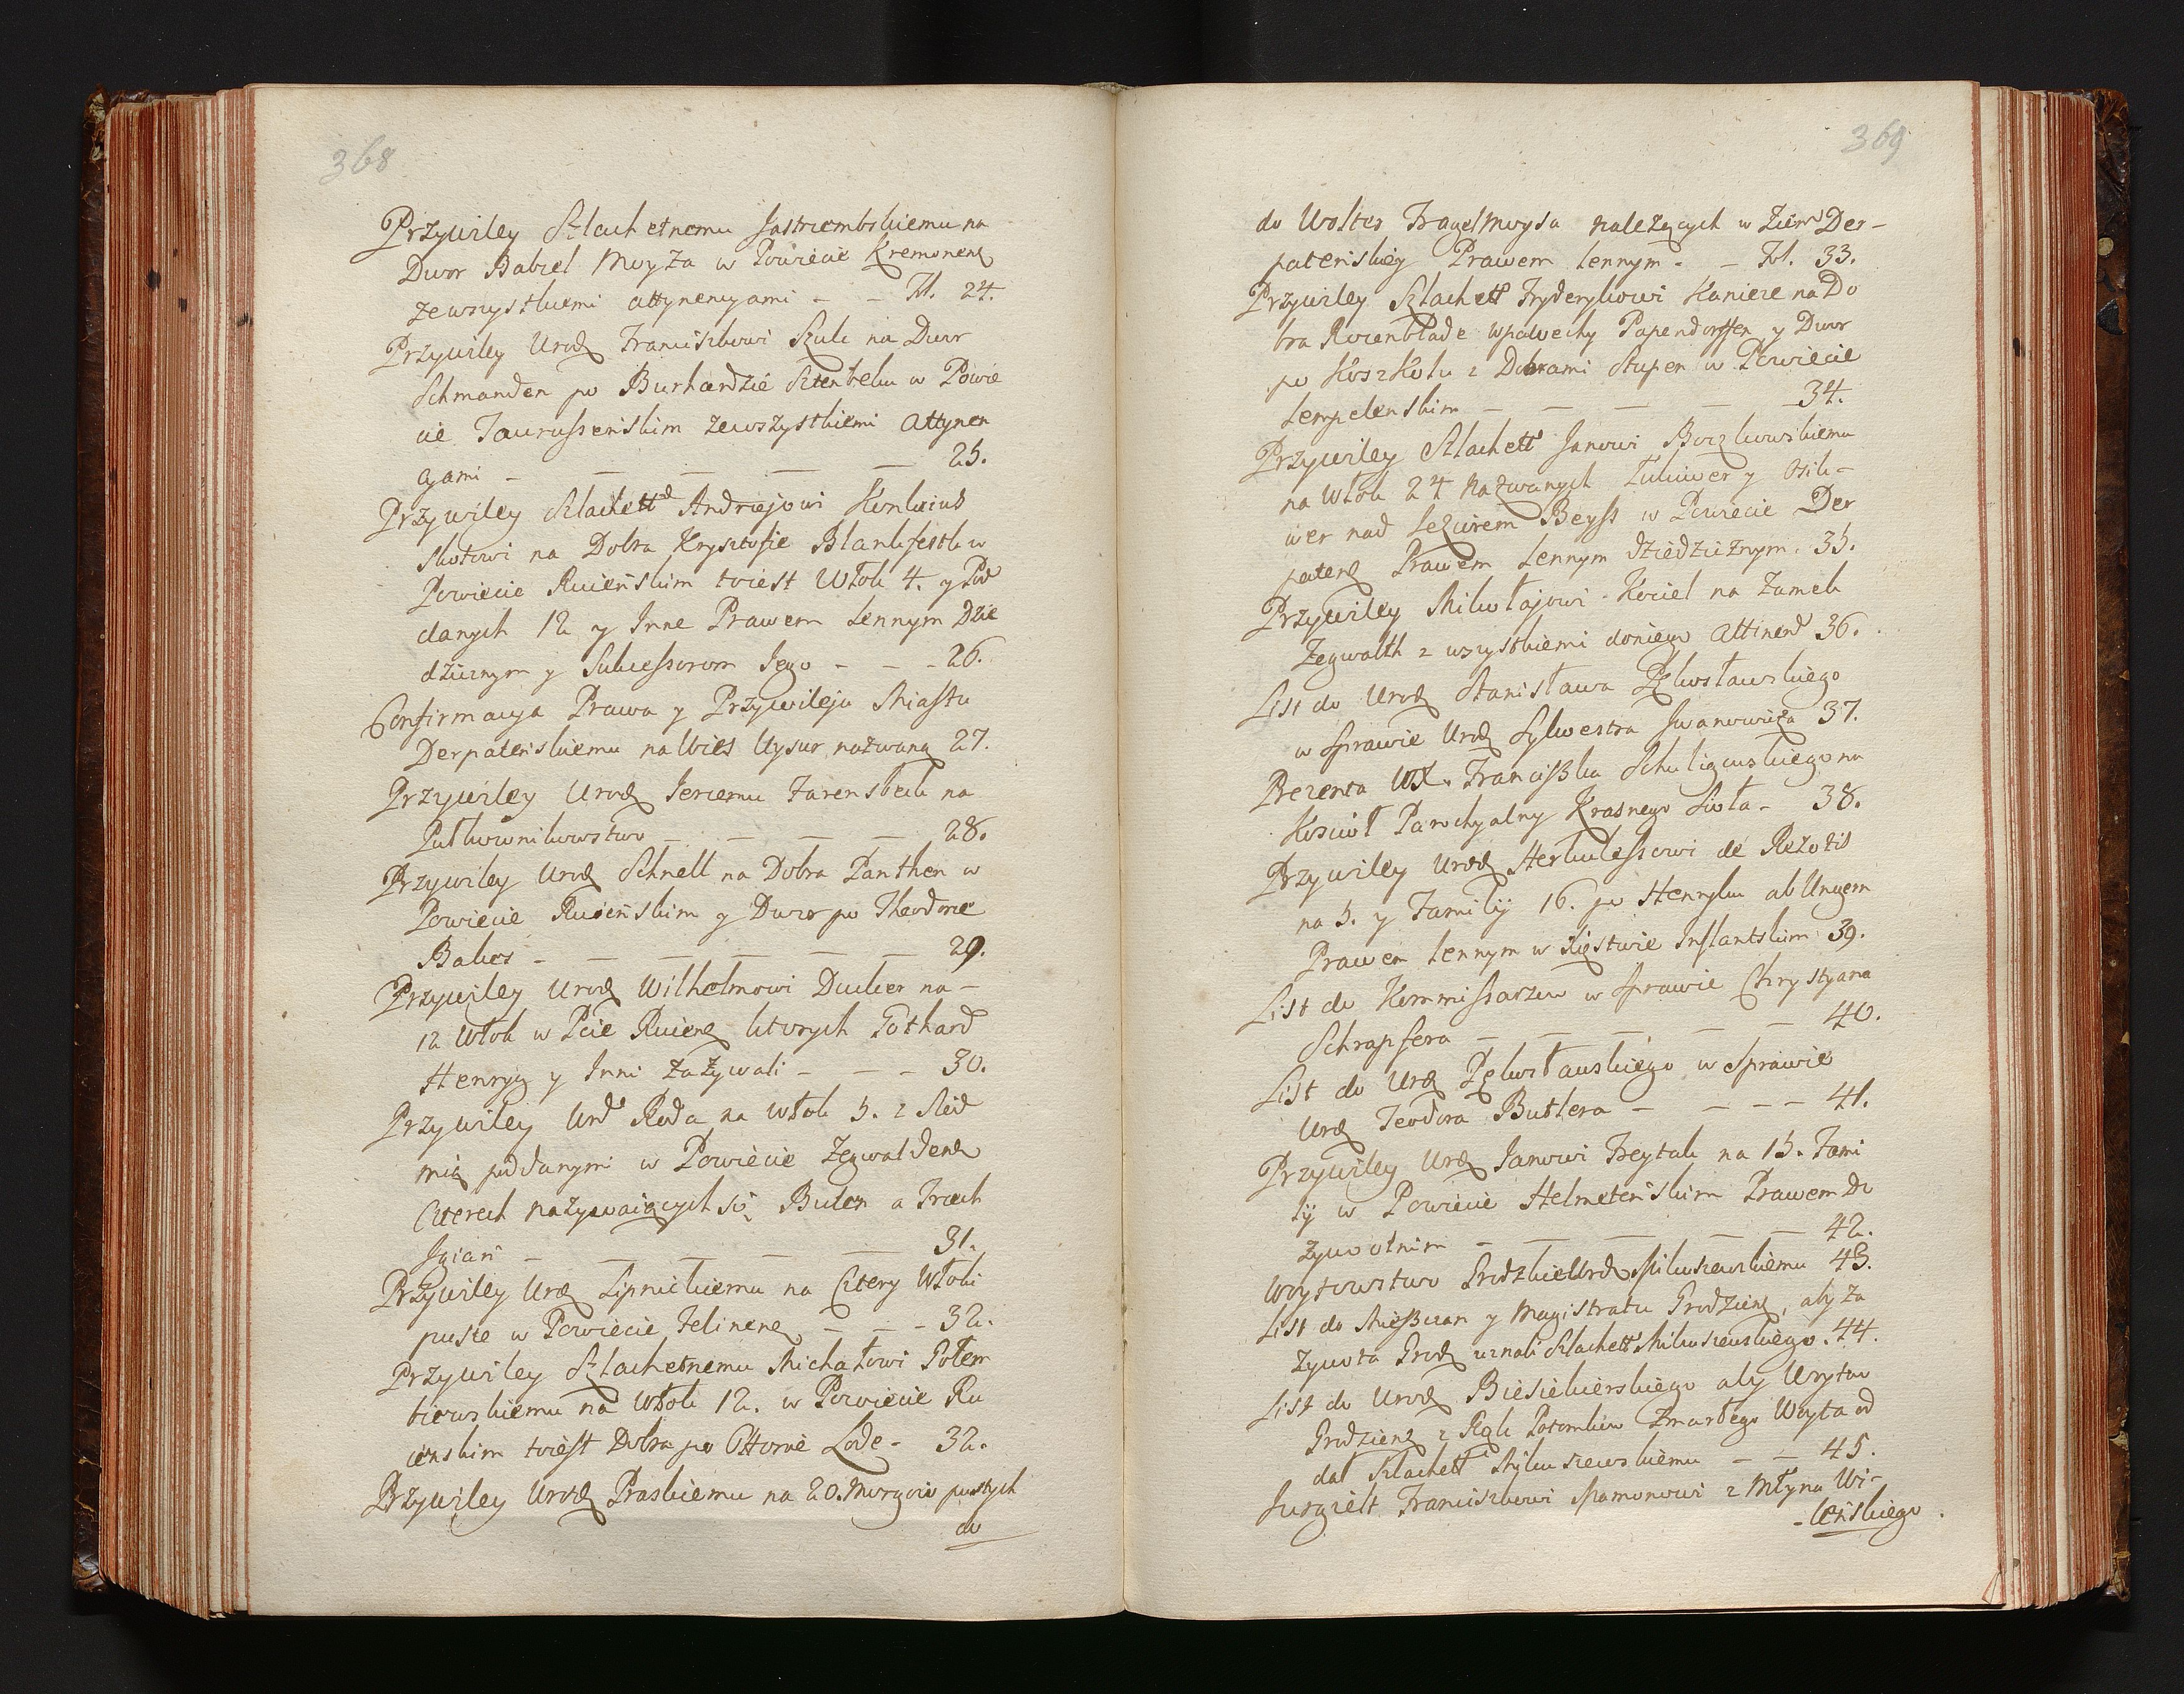 368
Przywiley Szlachetnemu Jastrzembskiemu na
Dwor Babzel Moyza w Powiecie Kremonenß
zewszystkiemi attynencyami - - Fol. 24.
Przywiley Urodz Franciszkowi Szulc na Dwor
Schmanden po Burhardzie Sztenbeku w Powie
cie Taurussenskim zewszystkiemi Attynen
cyami - - - - - 25.
Przywiley Szlachett Andrzejowi Konkius
Szkotowi na Dobra Krysztofie Blankfestk w
Powiecie Ruienskim toiest Włok 4. y Pod
danych 12 y Inne Prawem Lennym Dzie
dzicznym y Sukcessorom Jego - - - 26.
Confirmacya Prawa y Przywileju Miastu
Derpatenskiemu na Wies Uysur nazwaną 27.
Przywiley Urodz Jerzemu Farensbek na
Pułkownikowstwo - - - - 28.
Przywiley Urodz Schnell na Dobra Panthen w
Powiecie Ruienskim y Dwor po Theodorze
Bakes - - - - - - 29.
Przywiley Urodz Wilhelmowi Ducker na -
12 Włok w Pcie Ruienß ktorych Gothard
Henryg y Inni Zażywali - - - 30.
Przywiley Urod Roda na Włok 5. z Sied
mią poddanymi w Powiecie Zegwaldenß
Czterech nazywaiących się Buten a Trzech
Igian - - - - - 31.
Przywiley Urodz Lipnickiemu na Cztery Włoki
puste w Powiecie Felinenß - - - 32.
Przywiley Szlachetnemu Michałowi Gołem
biewskiemu na Włok 12. w Powiecie Ru
ienskim toiest Dobra po Ottonie Lode - 32.
Przywiley Urodz Praskiemu na 20. Morgow pustych
do
369
do Woltes Fragelmoysa należących w Ziem Der-
patenskiey Prawem Lennym - - Fol. 33.
Przywiley Szlachett Fryderykowi Kanieze na Do
bra Rozenblade w Papendorffen y Dwor
po Koszkolu z Dobrami Stupen w Powiecie
Lempelenskim - - - - - 34.
Przywiley Szlachett Janowi Boczkowskiemu
na Włok 24 nazwanych Lukiwer y Osik-
wer nad Jeziorem Beyss w Powiecie Der
patenß Prawem Lennym dziedzicznym. 35.
Przywiley Mikołajowi Koziel na Zamek
Zegwalth z wszystkiemi doniego Attinend 36.
List do Urodz Stanisława Pękosławskiego
w Sprawie Urodz Sylwestra Iwanowicza 37.
Prezenta WX. Franciszka Schuligowskiego na
Kosciół Parochyalny Krasnego Sioła - 38.
Przywiley Urodz Herkulessowi de Rezotis
na 5. y Familij 16. po Henryku ab Ungem
Prawem Lennym w Xięstwie Inflantskim 39.
List do Kommissarzow w Sprawie Chrystyana
Schrapfera - - - - - 40.
List do Urodz Pękosławskiego w Sprawie
Urodz Teodora Butlera - - - - 41.
Przywiley Urodz Janowi Freytak na 15. Fami
lij w Powiecie Helmetenskim Prawem Do
żywotnim - - - - - 42.
Woytowstwo Grodzkie Urodz Mikoszewskiemu 43.
List do Mieszczan y Magistratu Grodzienß, aby Za
Zywota Grodz uznali Szlachett Mikoszewskiego. 44.
List do Urodz Biesiekierskiego aby Woytow
Grodzienß z Rąk Potomkow Zmarłego Woyta od
dał Szlachett Mikoszewskiemu - - 45.
Jurgielt Franciszkowi Mamonowi z Młyna Wi-
-lenskiego.